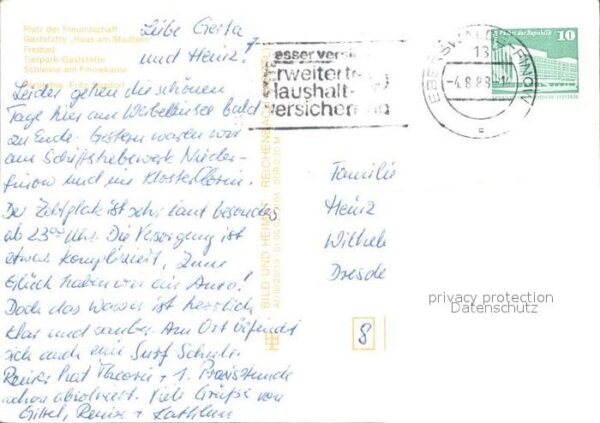 Platz der Freundschaft
Gaststätte „Haus am Stadtsee"
Freibad
Tierpark-Gaststätte
Schleuse am Finowkanal
Liebe Gerta
und Heinz!
Leider gehen die schönen
Tage hier am Werbellinsee bald
zu Ende. Gestern waren wir
am Schiffshebewerk Nieder-
finow und in Kloster Chorin.
Der Zeltplatz ist sehr laut besonders
ab 23⁰⁰ Uhr. Die Versorgung ist
etwas kompliziert, zum
Glück haben wir ein Auto!
Doch das Wasser ist herrlich
klar und sauber. Am Ort befindet
sich auch eine Surf Schule.
hat Theorie + 1. Praxisstunde
schon absolviert. Viele Grüße von
+ Kathleen
BILD UND HEIMAT REICHENBACH
esser versi
Erweiterte
Haushalt-
versicherung
EBERSWALDE-FINOW
13
-4.8.88-
Palast der Republik
10
Familie
Heinz
Wilhelm
Dresde
privacy protection
Datenschutz
8